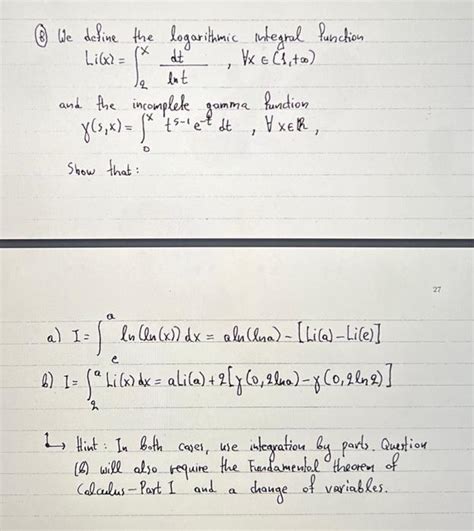 ⑧ We define the logarithmic integral function
Li(x) = ∫₂ˣ dt / ln t , ∀x ∈ (1,+∞)
and the incomplete gamma function
γ(s,x) = ∫₀ˣ t^{s-1} e^{-t} dt , ∀x∈ℝ,
Show that:
27
a) I = ∫ₑᵃ ln(ln(x)) dx = aln(lna) - [Li(a) - Li(e)]
b) I = ∫₂ᵃ Li(x) dx = aLi(a) + 2[γ(0,2lna) - γ(0,2ln2)]
↳ Hint: In both cases, use integration by parts. Question
(b) will also require the Fundamental theorem of
Calculus - Part I and a change of variables.